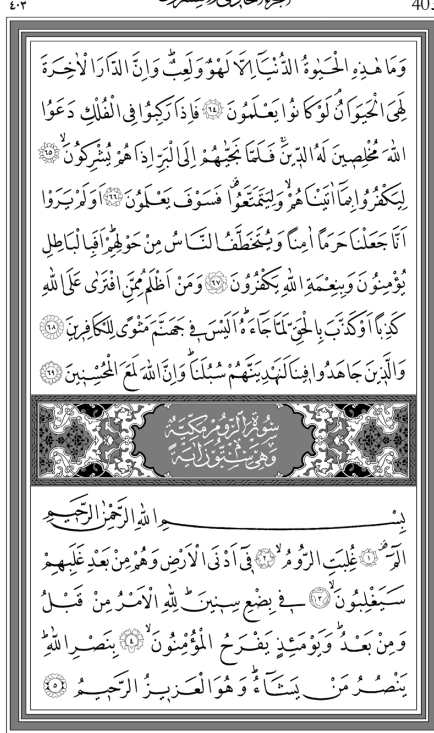 ٤٠٣ 403
وَمَا هٰذِهِ الْحَيٰوةُ الدُّنْيَٓا اِلَّا لَهْوٌ وَلَعِبٌۜ وَاِنَّ الدَّارَ الْاٰخِرَةَ
لَهِىَ الْحَيَوَانُۢ لَوْ كَانُوا يَعْلَمُونَ ﴿٦٤﴾ فَاِذَا رَكِبُوا فِى الْفُلْكِ دَعَوُا
اللّٰهَ مُخْلِصِينَ لَهُ الدِّينَۚ فَلَمَّا نَجّٰيهُمْ اِلَى الْبَرِّ اِذَا هُمْ يُشْرِكُونَۙ ﴿٦٥﴾
لِيَكْفُرُوا بِمَٓا اٰتَيْنَاهُمْۙ وَلِيَتَمَتَّعُوا۠ فَسَوْفَ يَعْلَمُونَ ﴿٦٦﴾ اَوَلَمْ يَرَوْا
اَنَّا جَعَلْنَا حَرَمًا اٰمِنًا وَيُتَخَطَّفُ النَّاسُ مِنْ حَوْلِهِمْۜ اَفَبِالْبَاطِلِ
يُؤْمِنُونَ وَبِنِعْمَةِ اللّٰهِ يَكْفُرُونَ ﴿٦٧﴾ وَمَنْ اَظْلَمُ مِمَّنِ افْتَرٰى عَلَى اللّٰهِ
كَذِبًا اَوْ كَذَّبَ بِالْحَقِّ لَمَّا جَٓاءَهُۜ اَلَيْسَ فِى جَهَنَّمَ مَثْوًى لِلْكَافِرِينَ ﴿٦٨﴾
وَالَّذِينَ جَاهَدُوا فِينَا لَنَهْدِيَنَّهُمْ سُبُلَنَاۜ وَاِنَّ اللّٰهَ لَمَعَ الْمُحْسِنِينَ ﴿٦٩﴾
سُورَةُ الرُّومِ مَكِّيَّةٌ
وَهِىَ سِتُّونَ اٰيَةً
بِسْمِ اللّٰهِ الرَّحْمٰنِ الرَّحِيمِ
الٓمٓۜ ﴿١﴾ غُلِبَتِ الرُّومُۙ ﴿٢﴾ فِٓى اَدْنَى الْاَرْضِ وَهُمْ مِنْ بَعْدِ غَلَبِهِمْ
سَيَغْلِبُونَۙ ﴿٣﴾ فِى بِضْعِ سِنِينَۜ لِلّٰهِ الْاَمْرُ مِنْ قَبْلُ
وَمِنْ بَعْدُۜ وَيَوْمَئِذٍ يَفْرَحُ الْمُؤْمِنُونَۙ ﴿٤﴾ بِنَصْرِ اللّٰهِۜ
يَنْصُرُ مَنْ يَشَٓاءُۜ وَهُوَ الْعَزِيزُ الرَّحِيمُ ﴿٥﴾